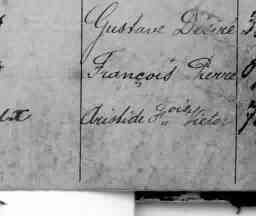 Gustave Désiré
François Pierre
Aristide Fois Victor